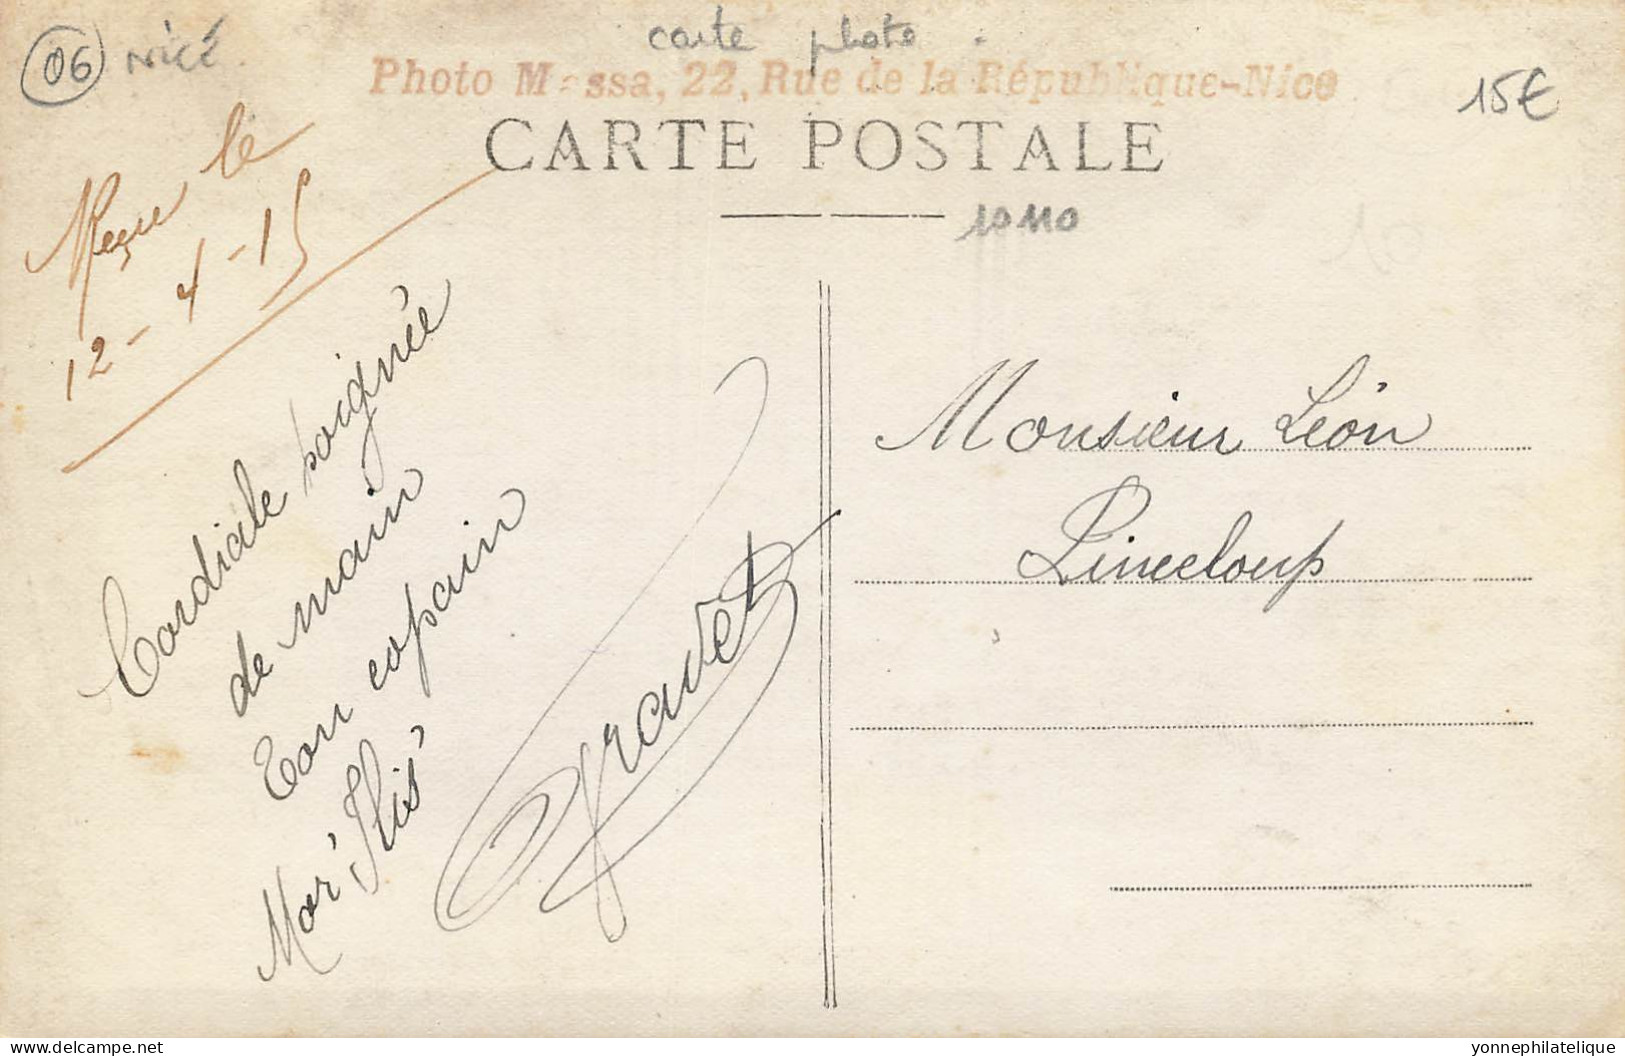 06 NICE
carte photo.
15€
Photo Massa, 22, Rue de la République-Nice
CARTE POSTALE
10110
Reçu le
12-4-15
Cordiale soignée
de main
Ton copain
Gravet
Monsieur Léon
delcampe.net
yonnephilatelique